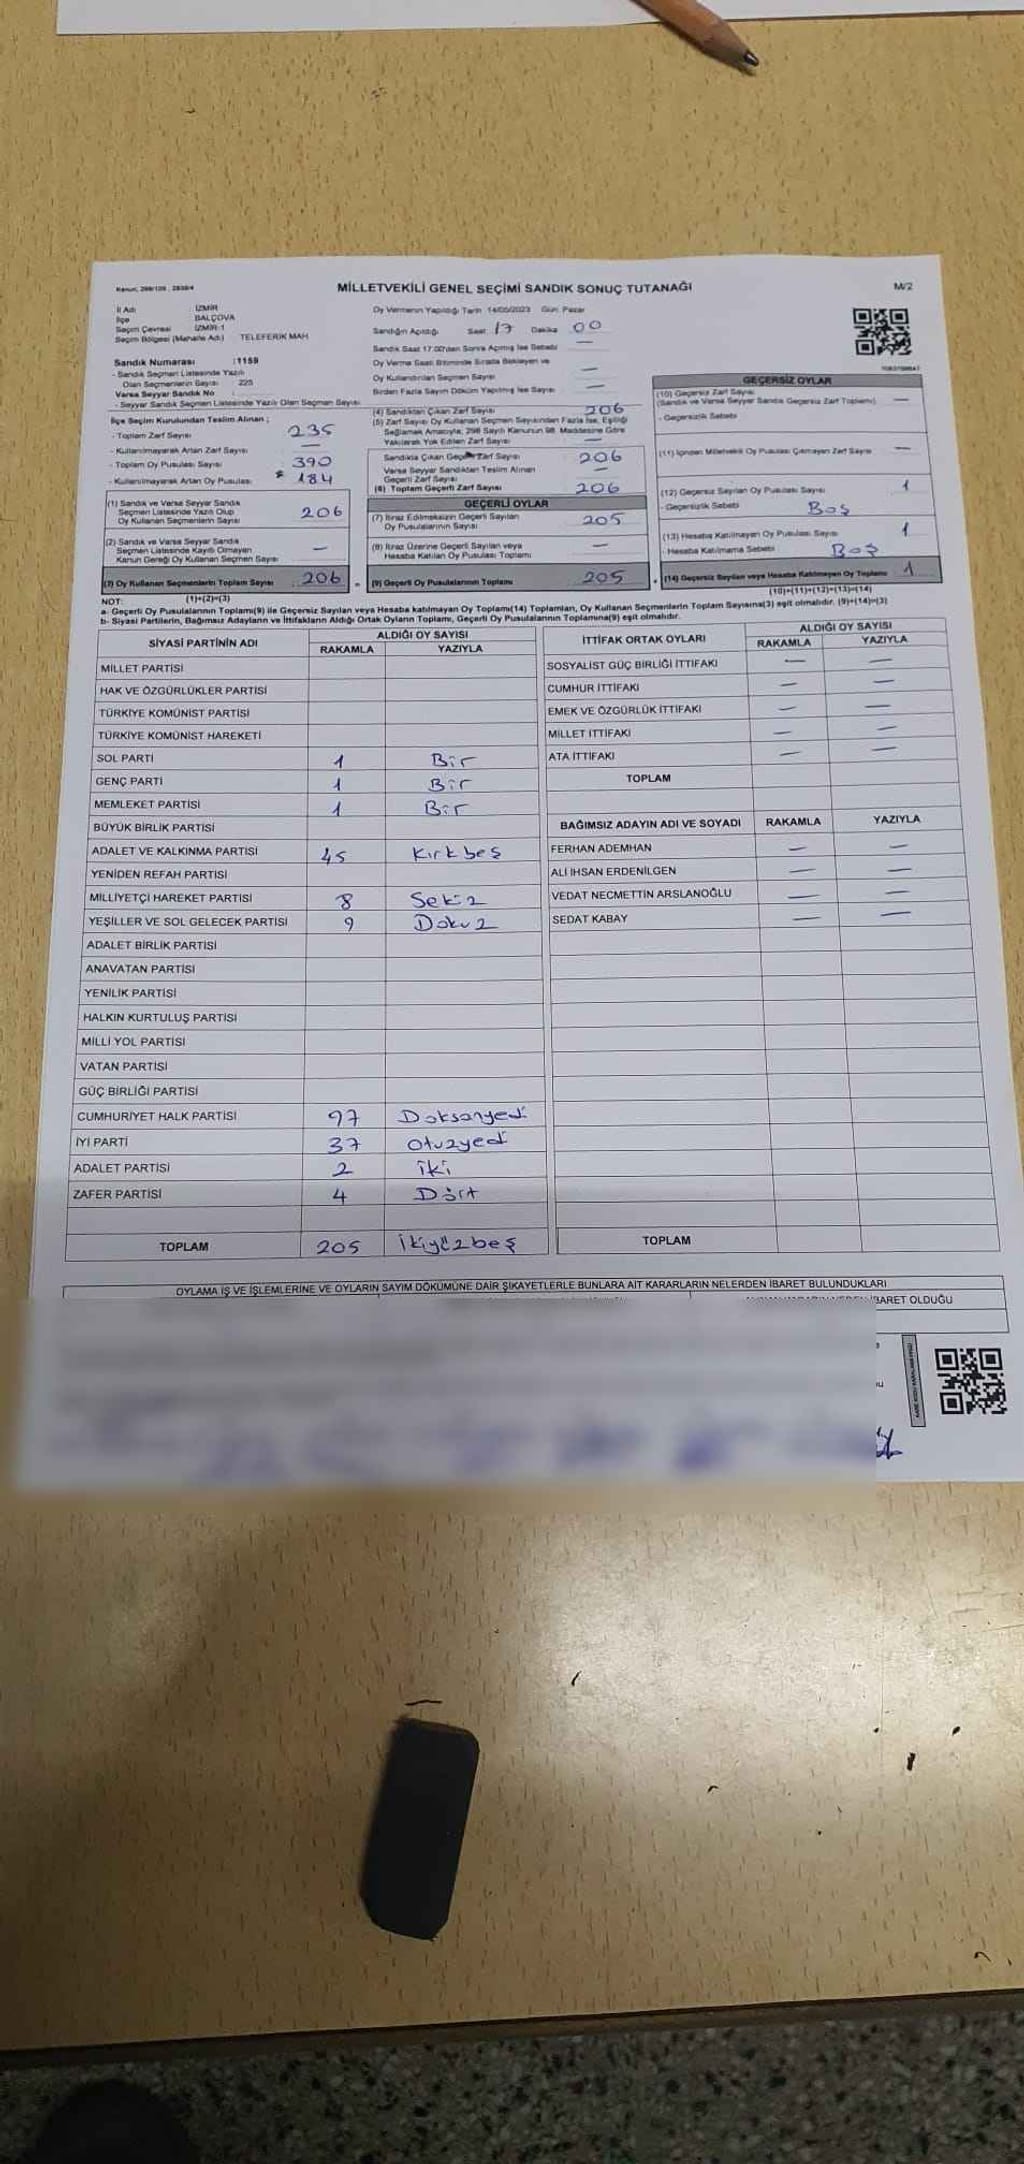 Kanun; 298/105 , 2839/4
MİLLETVEKİLİ GENEL SEÇİMİ SANDIK SONUÇ TUTANAĞI
M/2
İl Adı : İZMİR
İlçe BALÇOVA
Seçim Çevresi İZMİR-1
Seçim Bölgesi (Mahalle Adı) TELEFERİK MAH
Sandık Numarası :1159
- Sandık Seçmen Listesinde Yazılı
Olan Seçmenlerin Sayısı 225
Varsa Seyyar Sandık No
- Seyyar Sandık Seçmen Listesinde Yazılı Olan Seçmen Sayısı
Oy Vermenin Yapıldığı Tarih 14/05/2023 Gün: Pazar
Sandığın Açıldığı Saat 17 Dakika 00
Sandık Saat 17:00'den Sonra Açılmış İse Sebebi —
Oy Verme Saati Bitiminde Sırada Bekleyen ve
Oy Kullandırılan Seçmen Sayısı —
Birden Fazla Sayım Döküm Yapılmış İse Sayısı —
İlçe Seçim Kurulundan Teslim Alınan ;
- Toplam Zarf Sayısı 235
- Kullanılmayarak Artan Zarf Sayısı —
- Toplam Oy Pusulası Sayısı 390
- Kullanılmayarak Artan Oy Pusulası 184
(1) Sandık ve Varsa Seyyar Sandık
Seçmen Listesinde Yazılı Olup
Oy Kullanan Seçmenlerin Sayısı 206
(2) Sandık ve Varsa Seyyar Sandık
Seçmen Listesinde Kayıtlı Olmayan
Kanun Gereği Oy Kullanan Seçmen Sayısı —
(3) Oy Kullanan Seçmenlerin Toplam Sayısı 206
(1)+(2)=(3)
(4) Sandıktan Çıkan Zarf Sayısı 206
(5) Zarf Sayısı Oy Kullanan Seçmen Sayısından Fazla İse, Eşitliği
Sağlamak Amacıyla, 298 Sayılı Kanunun 98. Maddesine Göre
Yakılarak Yok Edilen Zarf Sayısı —
Sandıkta Çıkan Geçerli Zarf Sayısı 206
Varsa Seyyar Sandıktan Teslim Alınan
Geçerli Zarf Sayısı —
(6) Toplam Geçerli Zarf Sayısı 206
GEÇERLİ OYLAR
(7) İtiraz Edilmeksizin Geçerli Sayılan
Oy Pusulalarının Sayısı 205
(8) İtiraz Üzerine Geçerli Sayılan veya
Hesaba Katılan Oy Pusulası Toplamı —
(9) Geçerli Oy Pusulalarının Toplamı 205
GEÇERSİZ OYLAR
(10) Geçersiz Zarf Sayısı
(Sandık ve Varsa Seyyar Sandık Geçersiz Zarf Toplamı) —
- Geçersizlik Sebebi
(11) İçinden Milletvekili Oy Pusulası Çıkmayan Zarf Sayısı —
(12) Geçersiz Sayılan Oy Pusulası Sayısı 1
- Geçersizlik Sebebi Boş
(13) Hesaba Katılmayan Oy Pusulası Sayısı 1
- Hesaba Katılmama Sebebi Boş
(14) Geçersiz Sayılan veya Hesaba Katılmayan Oy Toplamı 1
(10)+(11)+(12)+(13)=(14)
NOT:
a- Geçerli Oy Pusulalarının Toplamı(9) ile Geçersiz Sayılan veya Hesaba katılmayan Oy Toplamı(14) Toplamları, Oy Kullanan Seçmenlerin Toplam Sayısına(3) eşit olmalıdır. (9)+(14)=(3)
b- Siyasi Partilerin, Bağımsız Adayların ve İttifakların Aldığı Ortak Oyların Toplamı, Geçerli Oy Pusulalarının Toplamına(9) eşit olmalıdır.
SİYASİ PARTİNİN ADI ALDIĞI OY SAYISI
RAKAMLA YAZIYLA
MİLLET PARTİSİ
HAK VE ÖZGÜRLÜKLER PARTİSİ
TÜRKİYE KOMÜNİST PARTİSİ
TÜRKİYE KOMÜNİST HAREKETİ
SOL PARTİ 1 Bir
GENÇ PARTİ 1 Bir
MEMLEKET PARTİSİ 1 Bir
BÜYÜK BİRLİK PARTİSİ
ADALET VE KALKINMA PARTİSİ 45 Kırkbeş
YENİDEN REFAH PARTİSİ
MİLLİYETÇİ HAREKET PARTİSİ 8 Sekiz
YEŞİLLER VE SOL GELECEK PARTİSİ 9 Dokuz
ADALET BİRLİK PARTİSİ
ANAVATAN PARTİSİ
YENİLİK PARTİSİ
HALKIN KURTULUŞ PARTİSİ
MİLLİ YOL PARTİSİ
VATAN PARTİSİ
GÜÇ BİRLİĞİ PARTİSİ
CUMHURİYET HALK PARTİSİ 97 Doksanyedi
İYİ PARTİ 37 Otuzyedi
ADALET PARTİSİ 2 İki
ZAFER PARTİSİ 4 Dört
TOPLAM 205 İkiyüzbeş
İTTİFAK ORTAK OYLARI ALDIĞI OY SAYISI
RAKAMLA YAZIYLA
SOSYALİST GÜÇ BİRLİĞİ İTTİFAKI — —
CUMHUR İTTİFAKI — —
EMEK VE ÖZGÜRLÜK İTTİFAKI — —
MİLLET İTTİFAKI — —
ATA İTTİFAKI — —
TOPLAM
BAĞIMSIZ ADAYIN ADI VE SOYADI RAKAMLA YAZIYLA
FERHAN ADEMHAN — —
ALİ İHSAN ERDENİLGEN — —
VEDAT NECMETTİN ARSLANOĞLU — —
SEDAT KABAY — —
TOPLAM
OYLAMA İŞ VE İŞLEMLERİNE VE OYLARIN SAYIM DÖKÜMÜNE DAİR ŞİKAYETLERLE BUNLARA AİT KARARLARIN NELERDEN İBARET BULUNDUKLARI
İBARET OLDUĞU